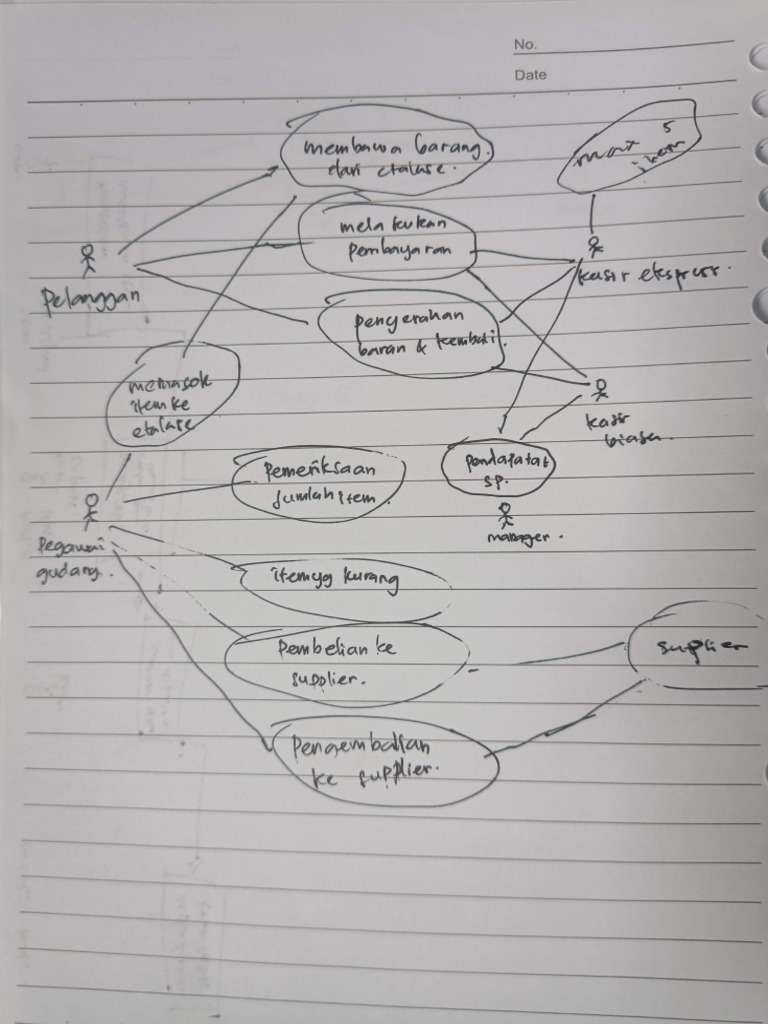 No.
Date
membawa barang
dari etalase.
max 5
item
melakukan
pembayaran
kasir ekspress.
Pelanggan
penyerahan
baran & kembali.
memasok
item ke
etalase
kasir
biasa.
Pemeriksaan
Jumlah item.
sp.
manager.
Pegawai
gudang.
item yg kurang
Pembelian ke
supplier.
suplier
Pengembalian
ke supplier.